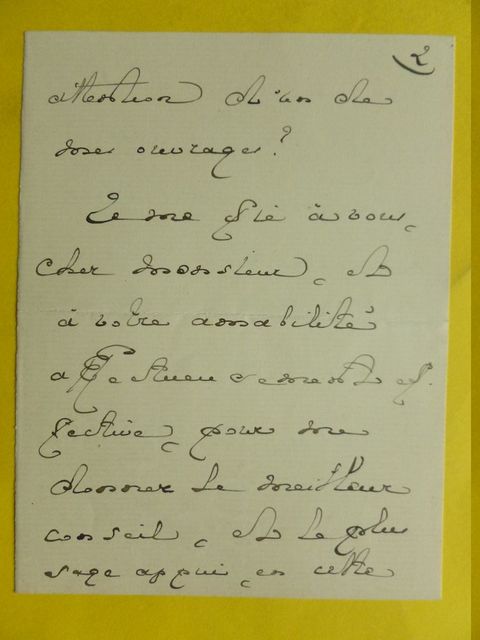 2
attention d'un de
mes ouvrages?
Je me fie à vous,
cher monsieur, et
à votre amabilité
affectueusement ef-
fective, pour me
donner le meilleur
conseil, et le plus
sage appui, en cette